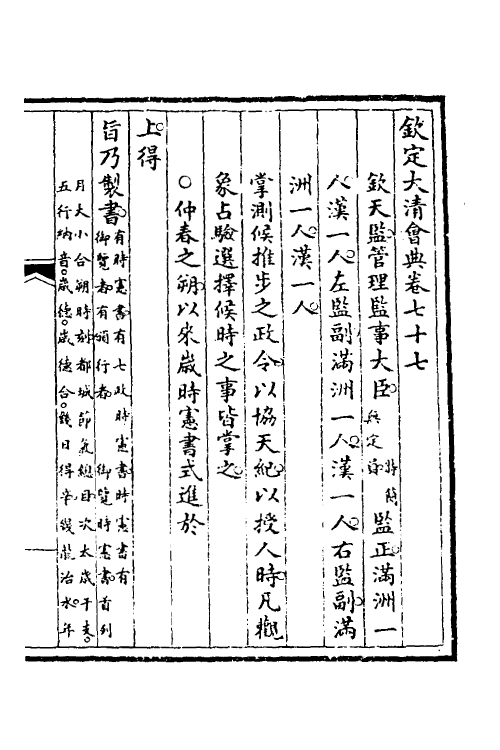 欽定大清會典卷七十七
欽天監管理監事大臣 特簡無定員 監正滿洲一
人漢一人左監副滿洲一人漢一人右監副滿
洲一人漢一人
掌測候推步之政令以協天紀以授人時凡觀
象占驗選擇候時之事皆掌之
○仲春之朔以來歲時憲書式進於
上得
旨乃製書 有時憲書有七政時憲書時憲書有
御覽者有頒行者 御覽時憲書首列
月大小合朔時刻都城節氣總目次太歲干支
五行納音歲德歲德合幾日得辛幾龍治水年